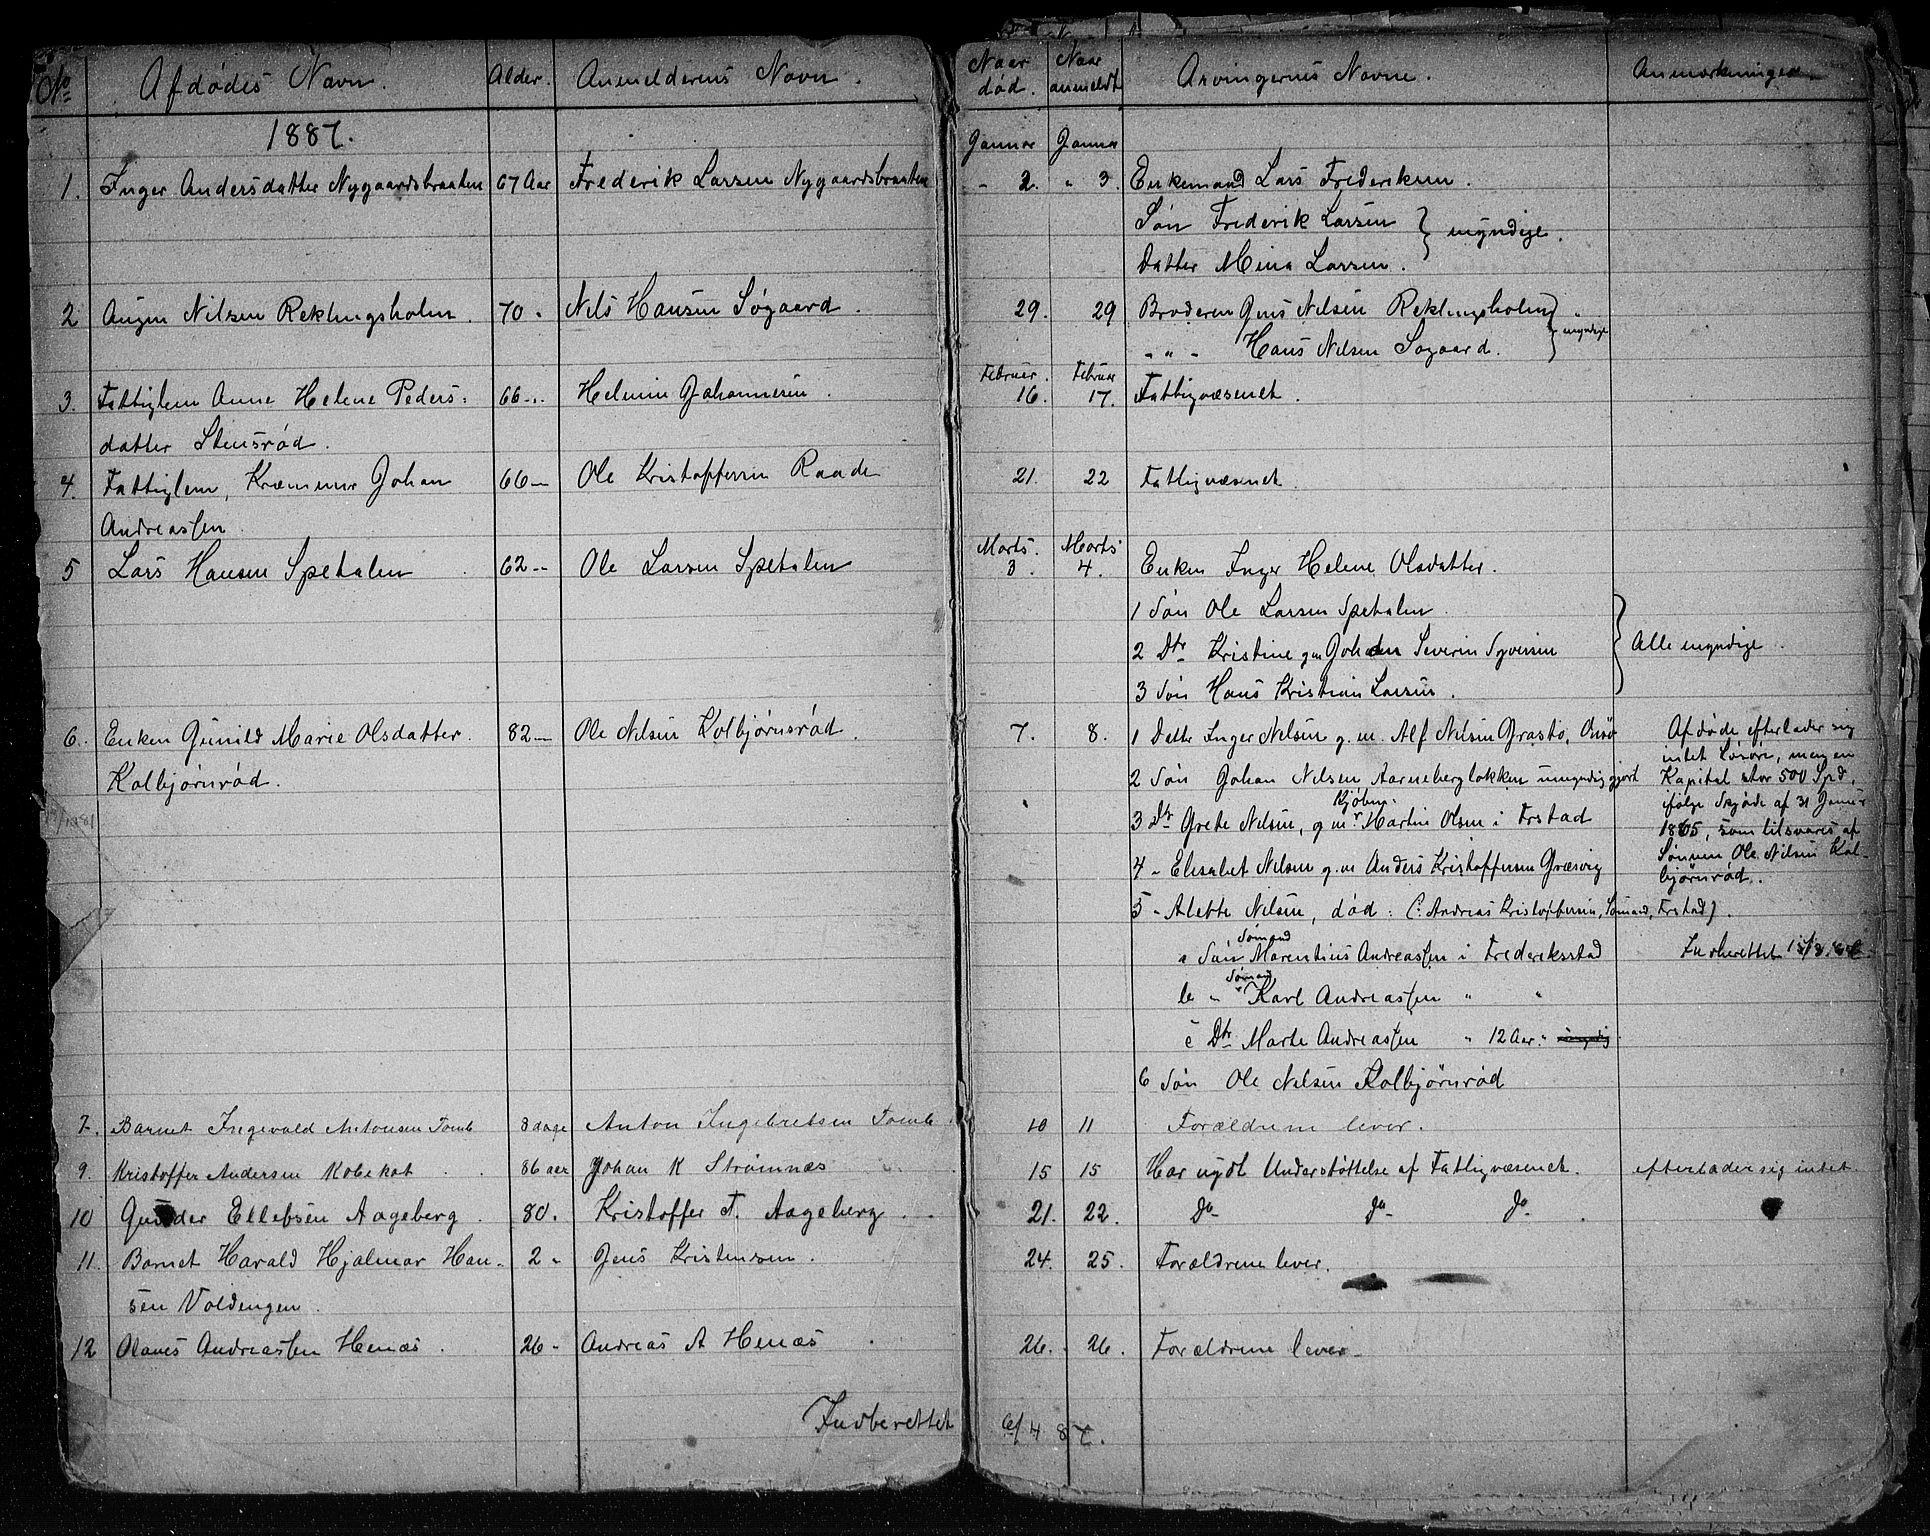 No Afdødes Navn. Alder. Anmelderens Navn. Naar død. Naar anmeldt Arvingernes Navne. Anmærkninger
1887. Januar Januar
1. Inger Andersdatter Nygaardsbraaten 67 Aar Frederik Larsen Nygaardsbraaten - 2. " 3. Enkemand Lars Frederiksen.
Søn Frederik Larsen } myndige.
Datter Mina Larsen.
2 Nilsen Reklingsholm. 70 " Nils Hansen Søgaard. 29. 29 Broderen Jens Nilsen Reklingsholm } myndige
- " - Hans Nilsen Søgaard.
Februar. Februar
3. Fattiglem Anne Helene Peders= 66 -.. Helmin Johannesen. 16. 17. Fattigvæsenet.
datter Stensrød.
4. Fattiglem, Kræmmer Johan 66 — Ole Kristoffersen Raade 21. 22 Fattigvæsenet.
Andreassen
Marts. Marts
5 Lars Hansen Spetalen 62 -- Ole Larsen Spetalen 3. 4. Enken Inger Helene Olsdatter.
1 Søn Ole Larsen Spetalen.
2 Dtr Kristine gm Johan Severin Syversen } Alle myndige.
3 Søn Hans Kristian Larsen.
6. Enken Gunild Marie Olsdatter. 82 — Ole Nilsen Kolbjørnsrød. 7. 8. 1 Datter Inger Nilsen g. m. Alf Nilsen Græsto, Onsø Afdøde efterlader sig
intet Løsøre, men en
Kolbjørnrød. 2 Søn Johan Nilsen Aarnebergløkken umyndiggjort Kapital stor 500 Spd.
Kjøbm. ifølge Skjøde af 31 Januar
3 Dtr Grete Nilsen, g m Martin Olsen i Frstad 1865, som tilsvares af
4 - Elisabet Nilsen g.m Anders Kristoffersen Græsvig Sønnen Ole Nilsen Kol-
bjørnrød.
5 - Alette Nilsen, død: (: Andreas Kristoffersen, Sømand, Frstad).
Sømand
a Søn Marentius Andreassen i Frederiksstad Indberettet
Sømand
b " Karl Andreassen " "
c Dtr Marte Andreassen " 12 Aar "
6 Søn Ole Nilsen Kolbjørnrød
7. Barnet Ingevald Antonsen Tomb 8 dage Anton Ingebretsen Tomb. 10 11 Forældrene lever.
9. Kristoffer Andersen Kobekot 86 aar Johan K Strømnæs 15 15 Har nydt Understøttelse af Fattigvæsenet. efterlader sig intet.
10 Gunder Ellefsen Aageberg. 80. Kristoffer T. Aageberg. 21. 22. Do do do.
11. Barnet Harald Hjalmar Han- 2 " Jens Kristensen. 24. 25. Forældrene lever.
sen Voldengen.
12 Olaves Andreassen Henæs. 26 - Andreas A Henæs 26. 26. Forældrene lever
Indberettet 6/4 87.